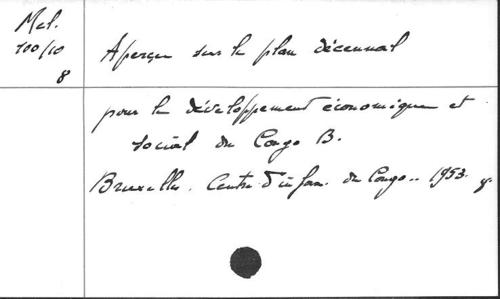 Mel.
100/10
8
Aperçu sur le plan décennal
pour le développement économique et
social du Congo B.
Bruxelles. Centre d'infor. du Congo.. 1953.